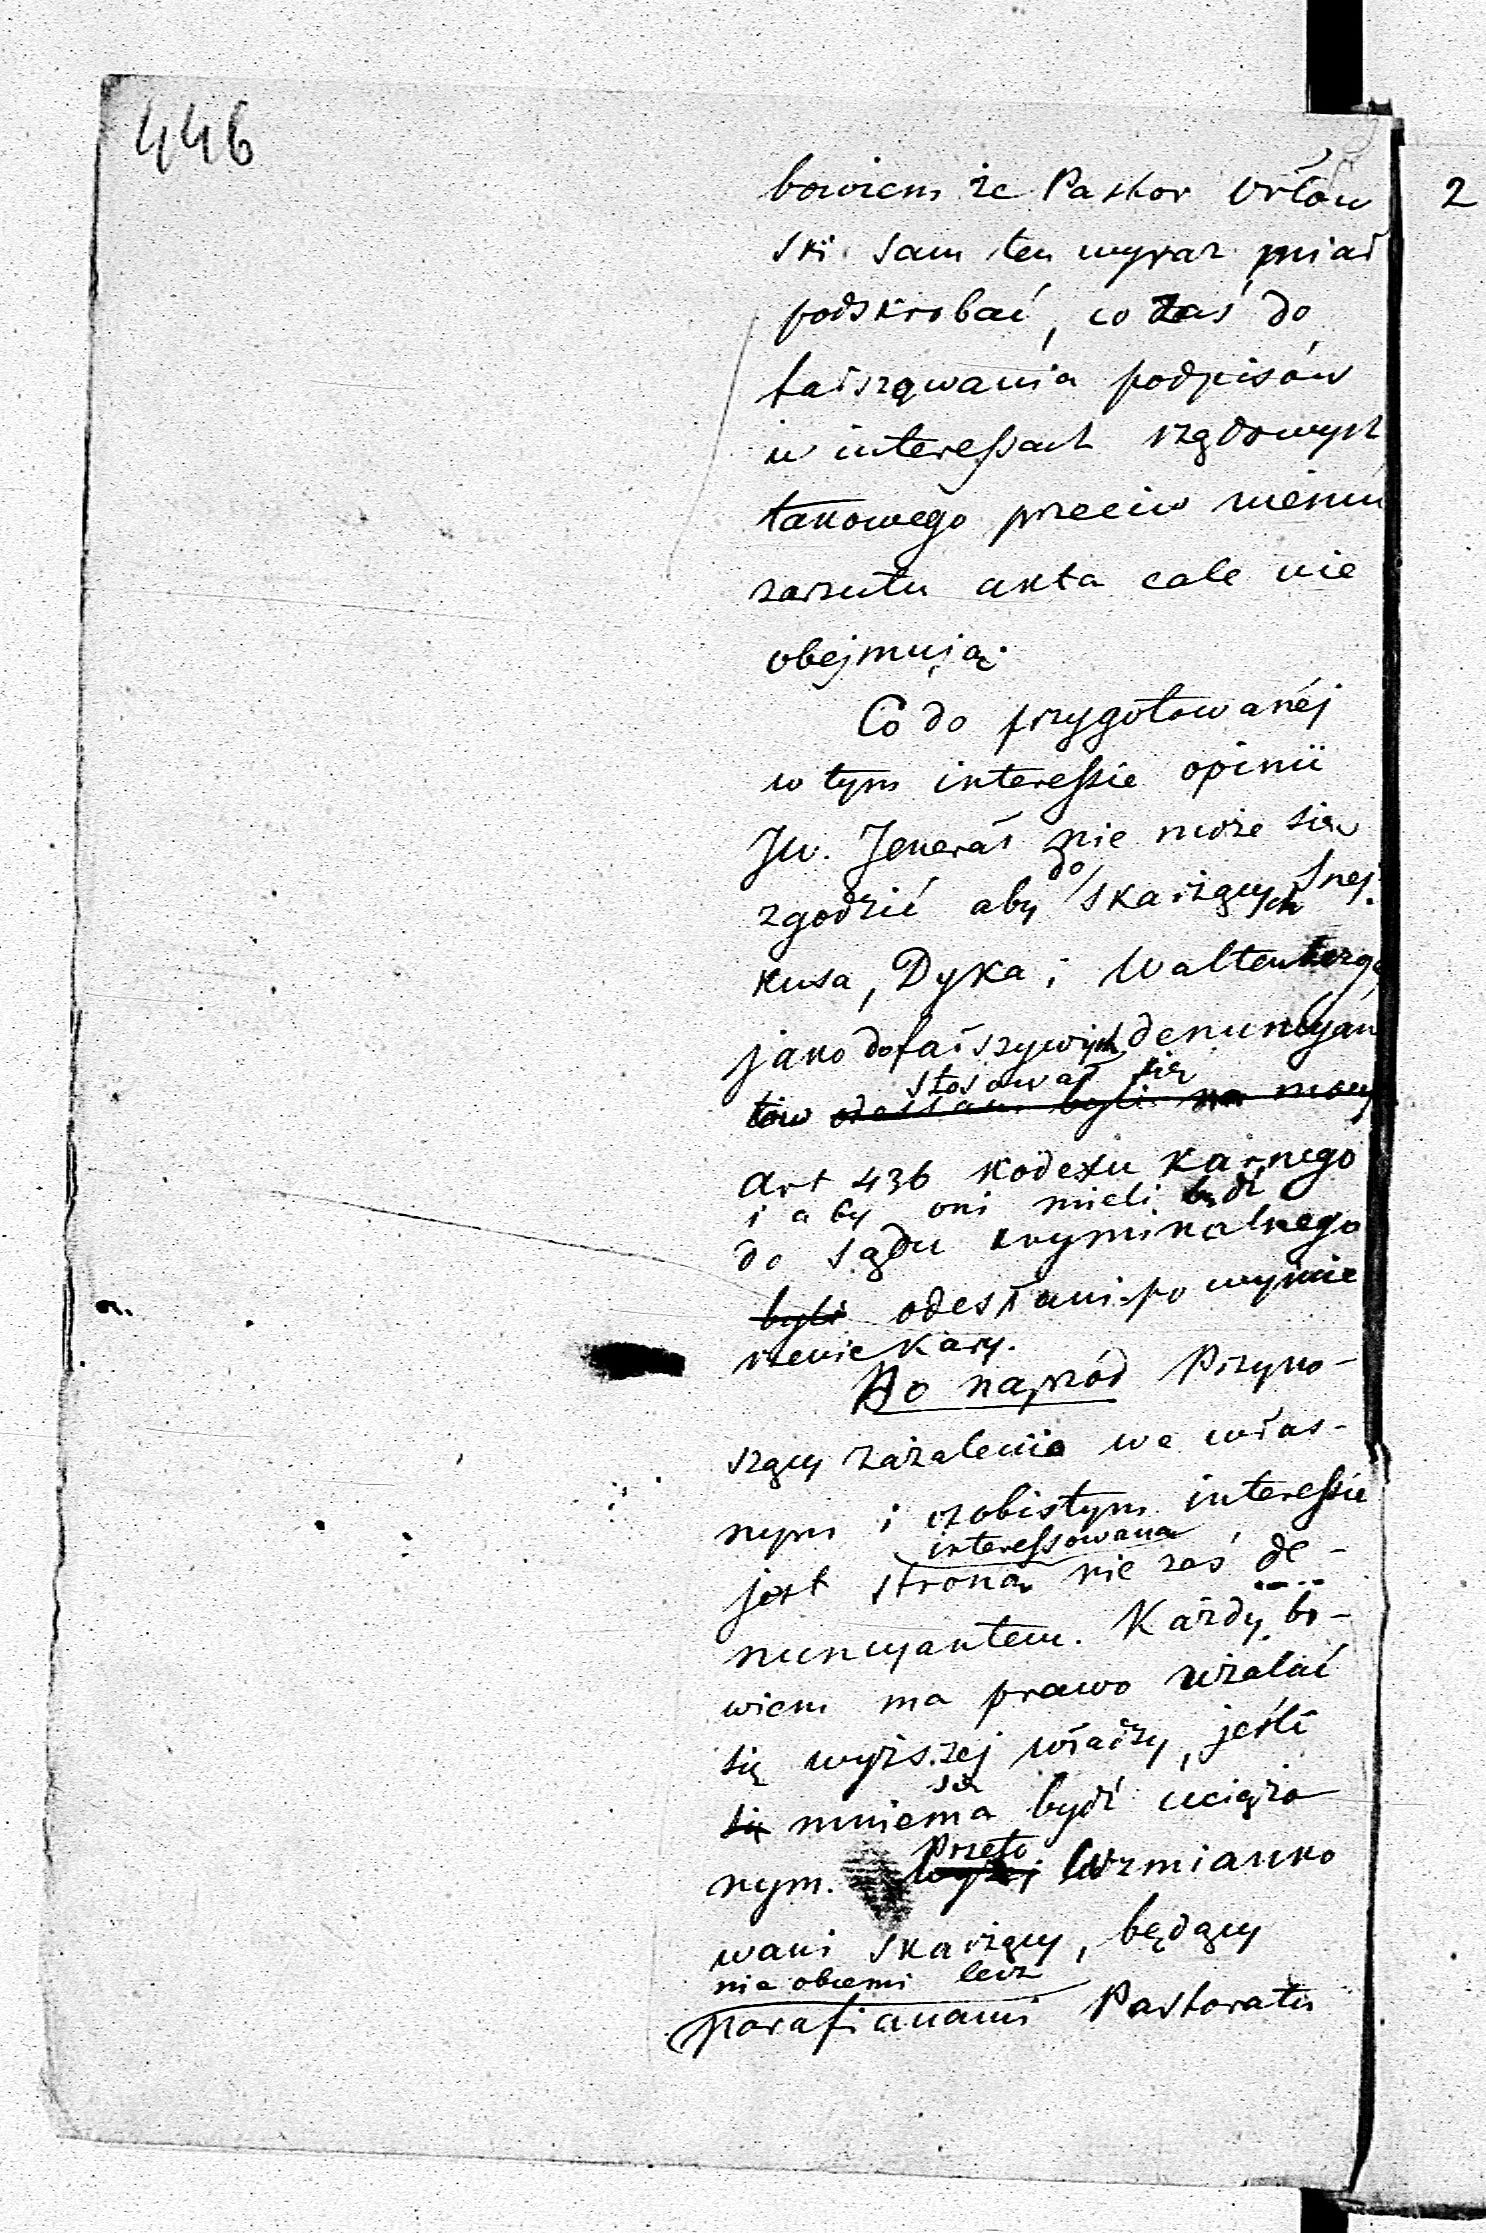 446
bowiem że Pastor Orłow
ski sam ten wyraz miał
podskrobać, co zaś do
fałszowania podpisów
w interessach rządowych
takowego przeciw niemu
zarzutu akta cale nie
obejmują.
Co do przygotowanéj
w tym interessie opinii
JW. Jenerał nie może się
do
zgodzić aby skarżących Snej
kusa, Dyka i Waltenberga
jako do fałszywych denuncyan
stosował się
tów odesłani byli na mocy
Art 436 Kodexu Karnego
i aby oni mieli bydź
do sądu kryminalnego
byli odesłani po wymie
rzenie Kary.
Bo naprzód Przyno-
szący zażalenie we włas-
nym i osobistym interessie
interessowaną
jest stroną nie zaś de-
nuncyantem. Każdy bo-
wiem ma prawo użalać
się wyższej władzy, jeśli
się
się mniema bydź uciążo
Przeto
nym. wyżej Wzmianko
wani skarżący, będący
nie obcemi lecz
parafianami Pastoratu
2